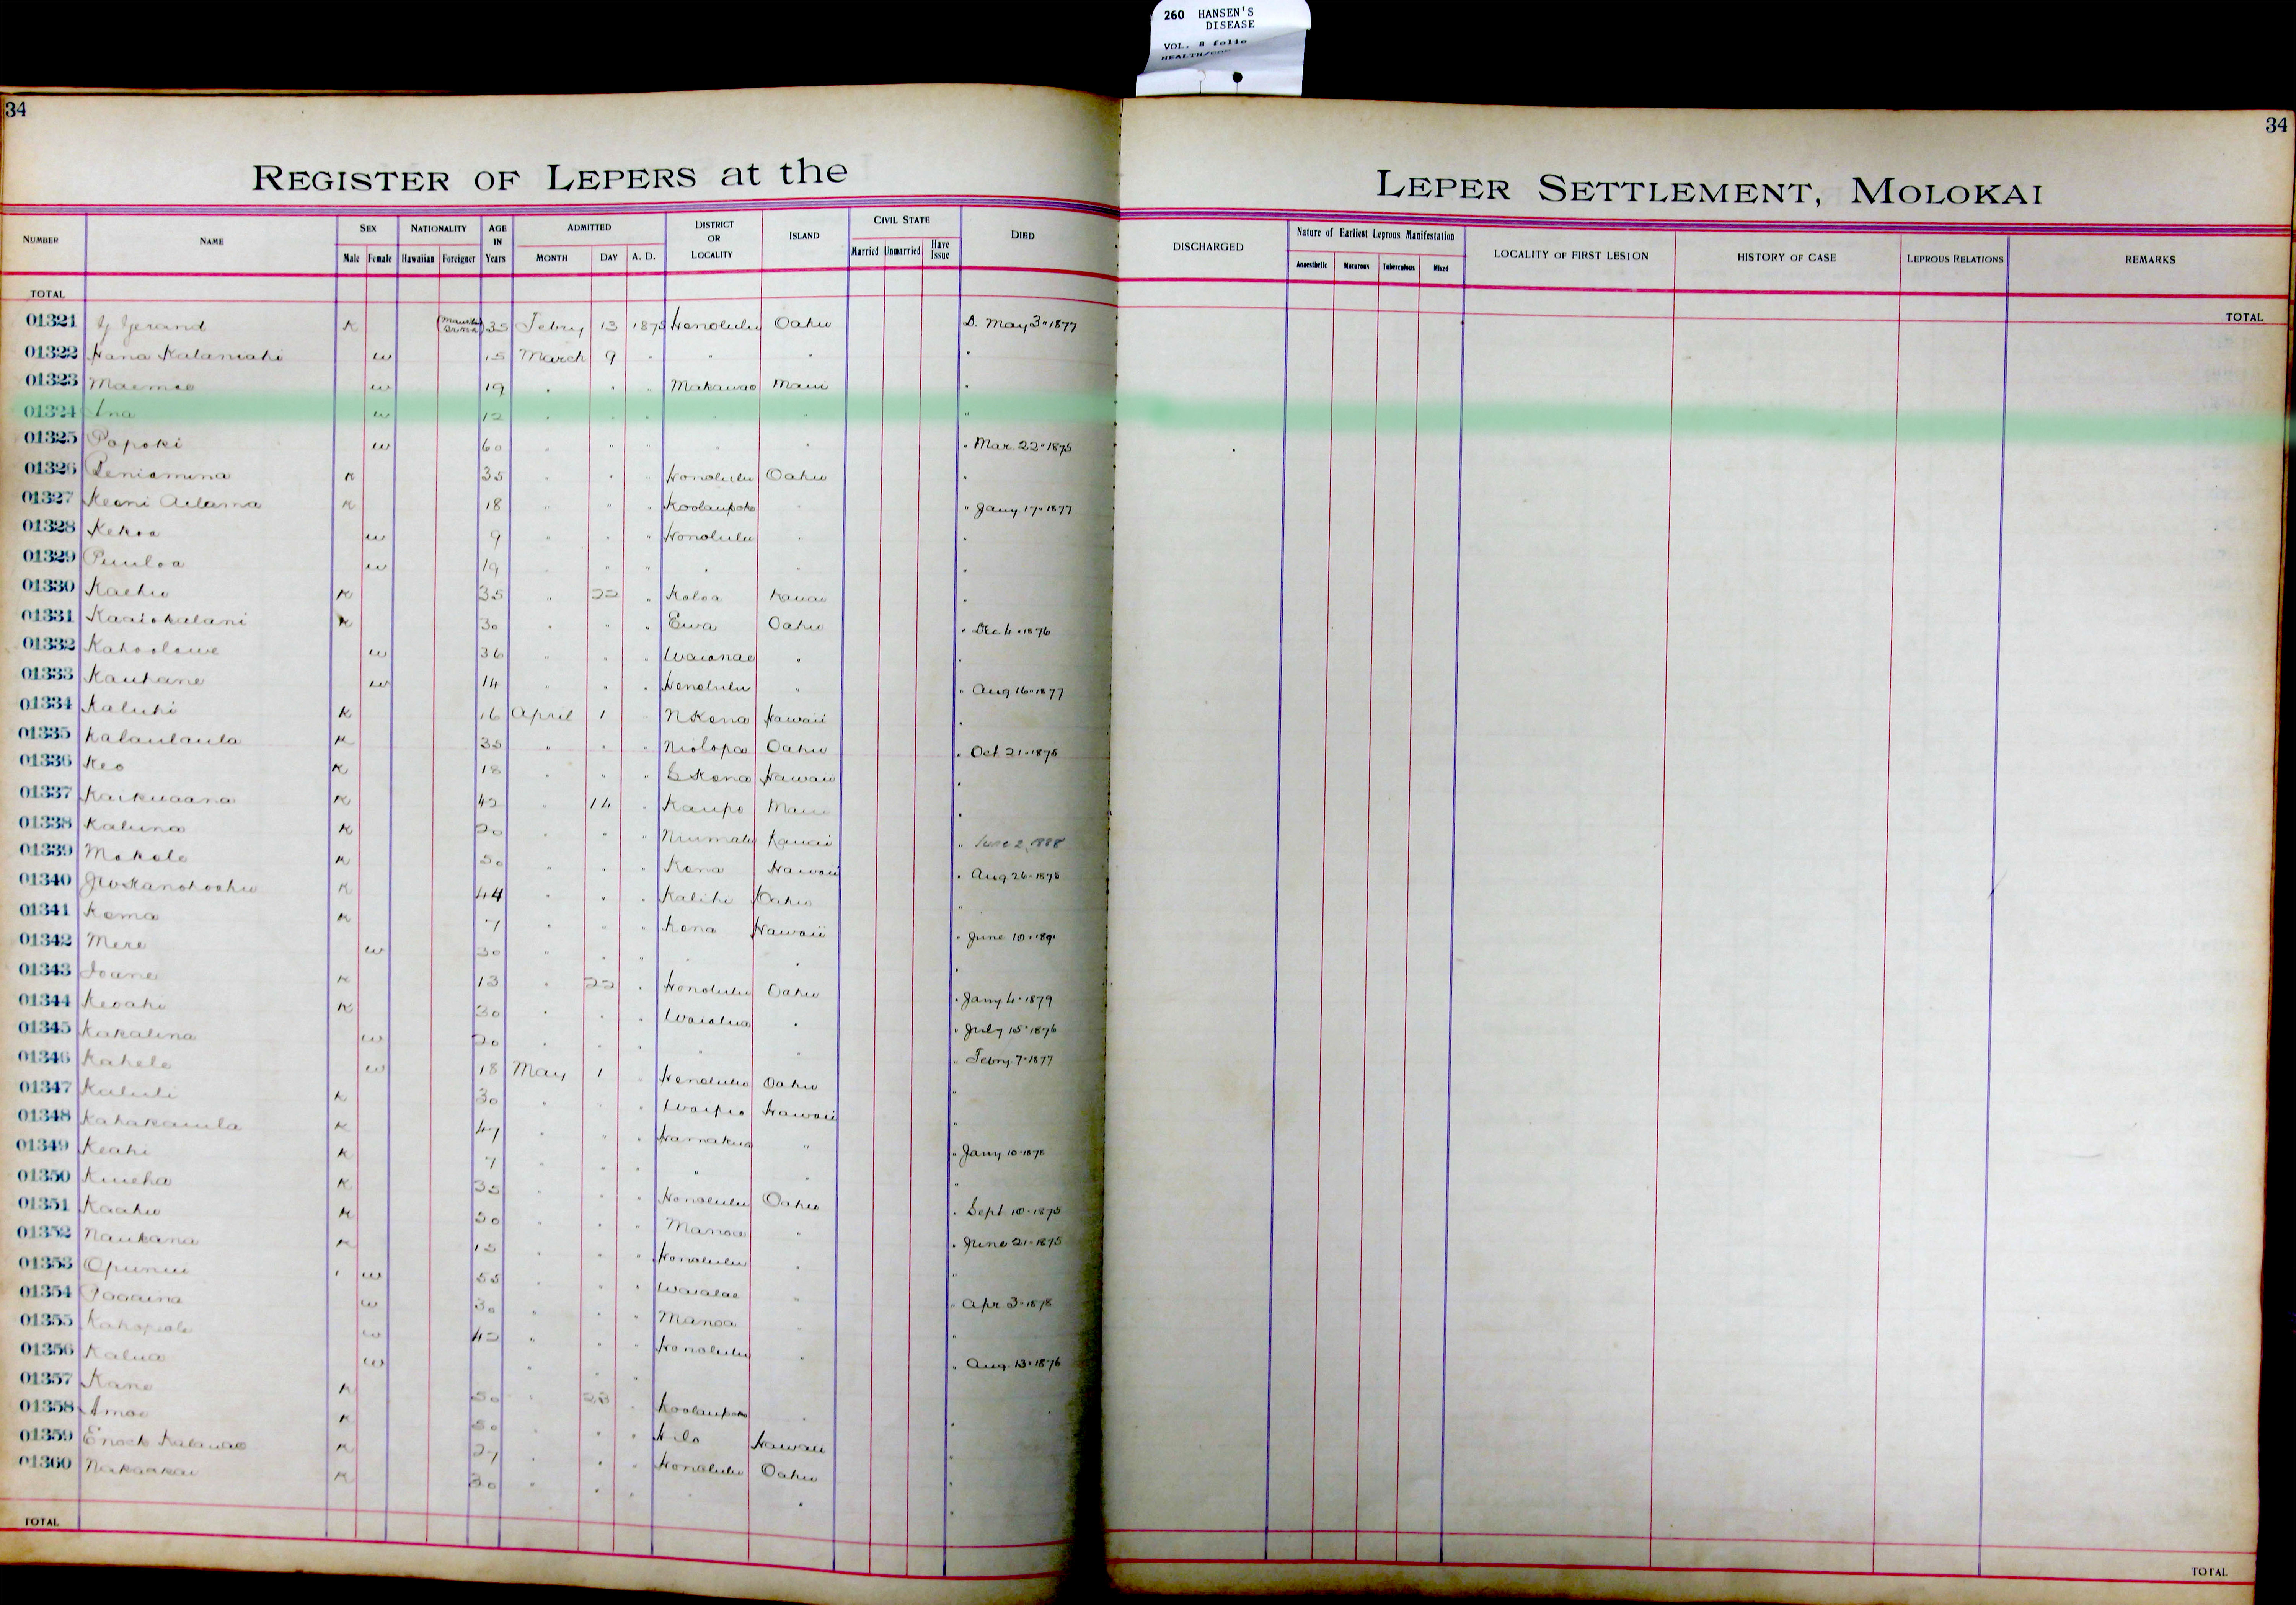 260 HANSEN'S
DISEASE
VOL. 8 folio
34
34
REGISTER OF LEPERS at the
LEPER SETTLEMENT, MOLOKAI
NUMBER NAME SEX Male Female NATIONALITY Hawaiian Foreigner AGE IN Years ADMITTED MONTH DAY A. D. DISTRICT OR LOCALITY ISLAND CIVIL STATE Married Unmarried Have Issue DIED
DISCHARGED Nature of Earliest Leprous Manifestation Anaesthetic Macurous Tuberculous Mixed LOCALITY OF FIRST LESION HISTORY OF CASE LEPROUS RELATIONS REMARKS
TOTAL
TOTAL
01321 K 35 Febry 13 1875 Honolulu Oahu D. May 3 " 1877
01322 Hana Kalaniahi w 15 March 9 " " "
01323 Maemae w 19 " " " Makawao Maui "
01324 Ana w 12 " " " " " "
01325 Popoki w 60 " " " " " " Mar. 22 " 1875
01326 Peniamina K 35 " " " Honolulu Oahu "
01327 Keoni Ailama K 18 " " " Koolaupoko " " Jany 17 " 1877
01328 Kekoa w 9 " " " Honolulu " "
01329 Puuloa w 19 " " " " " "
01330 Kaehu K 35 " 22 " Koloa Kauai "
01331 Kaaiokalani K 30 " " " Ewa Oahu " Dec 4 " 1876
01332 Kahoolawe w 36 " " " Waianae " "
01333 Kauhane w 14 " " " Honolulu " " Aug 16 " 1877
01334 Kaluhi K 16 April 1 " N Kona Hawaii "
01335 Kalaulaula K 35 " " " Niolopa Oahu " Oct 21 " 1875
01336 Keo K 18 " " " S Kona Hawaii "
01337 Kaikuaana K 42 " 14 " Kaupo Maui "
01338 Kaluna K 20 " " " Niumalu Kauai " June 2, 1888
01339 Makole K 50 " " " Kona Hawaii " Aug 26 " 1878
01340 K 44 " " " Kalihi Oahu "
01341 Kama K 7 " " " Kona Hawaii " June 10 " 1891
01342 Mere w 30 " " " " " "
01343 Ioane K 13 " 22 " Honolulu Oahu " Jany 4 " 1879
01344 Keoahi K 30 " " " Waialua " " July 15 " 1876
01345 Kakalina w 20 " " " " " " Febry. 7 " 1877
01346 Kahele w 18 May 1 " Honolulu Oahu "
01347 Kaluli K 30 " " " Waipio Hawaii "
01348 Kahakauila K 47 " " " Hamakua " "
01349 Keahi K 7 " " " " " " Jany 10 " 1878
01350 Kuieha K 35 " " " Honolulu Oahu "
01351 Kaahu K 50 " " " Manoa " " Sept. 10 " 1875
01352 Naukana K 15 " " " Honolulu " " June 21 " 1875
01353 Opunui w 55 " " " Waialae " "
01354 Paaaina w 30 " " " Manoa " " Apr. 3 " 1878
01355 w 42 " " " Honolulu " "
01356 Kalua w " " " " Aug. 13 " 1876
01357 Kane K 50 " 28 " Koolaupoko "
01358 Amoe K 50 " " " Hilo Hawaii "
01359 Enoch Kalauao K 27 " " " Honolulu Oahu "
01360 Nakaikai K 30 " " " " " "
TOTAL
TOTAL